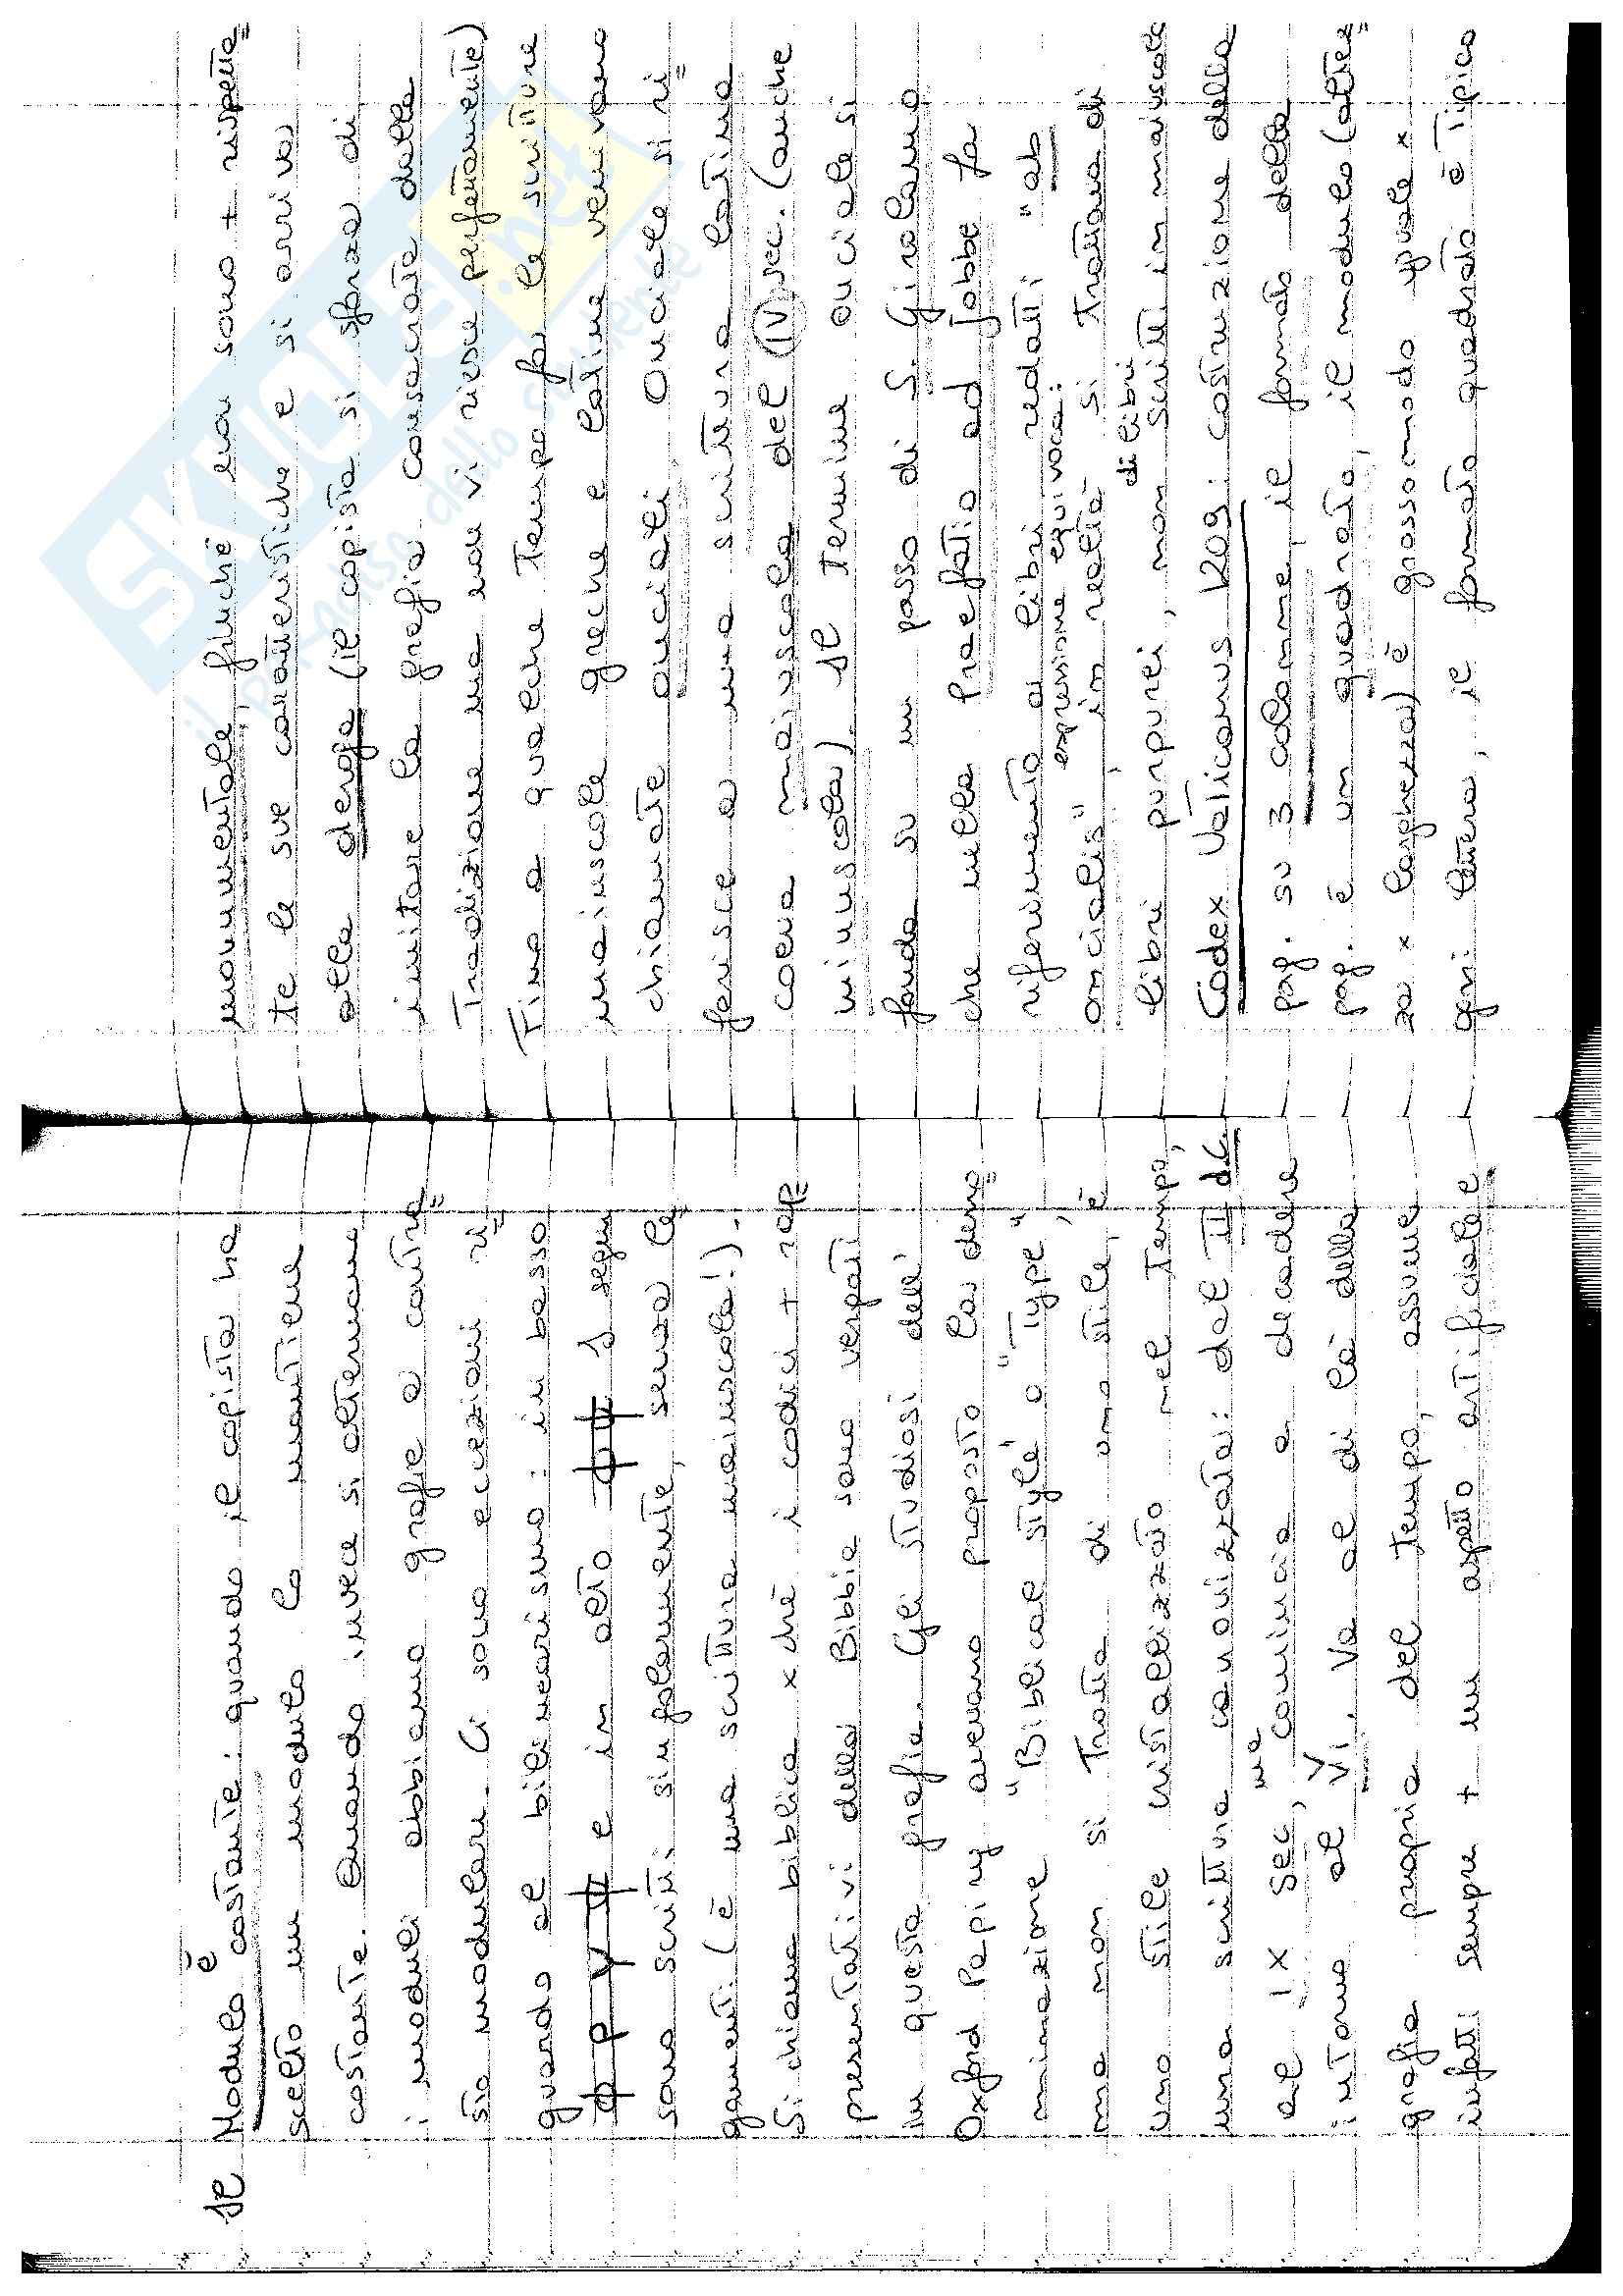 Il Modulo è costante: quando il copista ha
scelto un modulo lo mantiene
costante. Quando invece si alternano
i moduli abbiamo grafie a contra
sto modulare. Ci sono eccezioni ri
guardo al bilinearismo: in basso
φ ρ υ ψ e in alto φ ψ. I segni
sono scritti singolarmente, senza le
gamenti (è una scrittura maiuscola!).
Si chiama biblica xchè i codici + rap
presentativi della Bibbia sono vergati
in questa grafia. Gli studiosi dell'
Oxford Papiry avevano proposto la deno
minazione "Biblical style" o "Type",
ma non si tratta di uno stile, è
uno stile cristallizzato nel tempo,
una scrittura canonizzata: dal II d.C.
al IX sec, ma comincia a decadere
intorno al VI. Va al di là della
grafia propria del tempo, assume
infatti sempre + un aspetto artificiale e
monumentale, finché non sono + rispetta
te le sue caratteristiche e si arriva
alla deroga (il copista si sforza di
imitare la grafia consacrata dalla
tradizione ma non vi riesce perfettamente)
Fino a qualche tempo fa le scritture
maiuscole greche e latine venivano
chiamate onciali. Onciale si ri
ferisce a una scrittura latina
coeva maiuscola del IV sec. (anche
minuscola). Il termine onciale si
fonda su un passo di S. Girolamo
che nella Praefatio ad Jobbe fa
riferimento a libri redatti "ab
expressione equivoca:
oncialis", in realtà si trattava di
di libri
libri purpurei, non scritti in maiuscola
Codex Vaticanus 1209: costruzione della
pag. su 3 colonne, il formato della
pag. è un quadrato, il modulo (altez
za x larghezza) è grossomodo uguale x
ogni lettera, il formato quadrato è tipico
SKUOLA.net
il paradiso dello studente